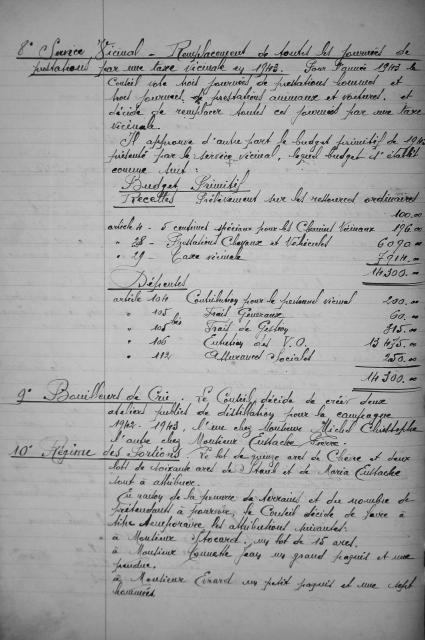 8° Service Vicinal - Remplacement de toutes les journées de
prestations par une taxe vicinale en 1943. Pour l'année 1943 le
Conseil vote trois journées de prestations hommes et
trois journées de prestations animaux et voitures, et
décide de remplacer toutes ces journées par une taxe
vicinale.
Il approuve d'autre part le budget primitif de 194
présenté par le service vicinal, lequel budget s'établit
comme suit :
Budget Primitif
Recettes Prélèvement sur les ressources ordinaires
100.00
article 4 - 5 centimes spéciaux pour les Chemins Vicinaux 196.00
" 28 - Prestations Chevaux et Véhicules 6090.00
" 29 - Taxe vicinale 7914.00
14300.00
Dépenses
article 104 Contribution pour le personnel vicinal 200.00
" 105 Frais Généraux 60.00
" 105 bis Frais de Gestion 315.00
" 106 Entretien des V.O. 13475.00
" 112 Assurances Sociales 250.00
14300.00
9° Bouilleurs de Cru. Le Conseil décide de créer deux
ateliers publics de distillation pour la campagne
1942-1943, l'un chez Monsieur Michel Christophe
l'autre chez Monsieur Eustache Pierre.
10° Régime des Portions Le lot de quinze ares de et deux
lots de soixante ares de et de Maria Eustache
sont à attribuer.
En raison de la pénurie de terrains et du nombre de
prétendants à pourvoir, le Conseil décide de faire à
titre temporaire les attributions suivantes:
à Monsieur Stocard, un lot de 15 ares.
à Monsieur Jean un grand paquis et une
pendue.
à Monsieur Evrard un petit paquis et une sept
hommées